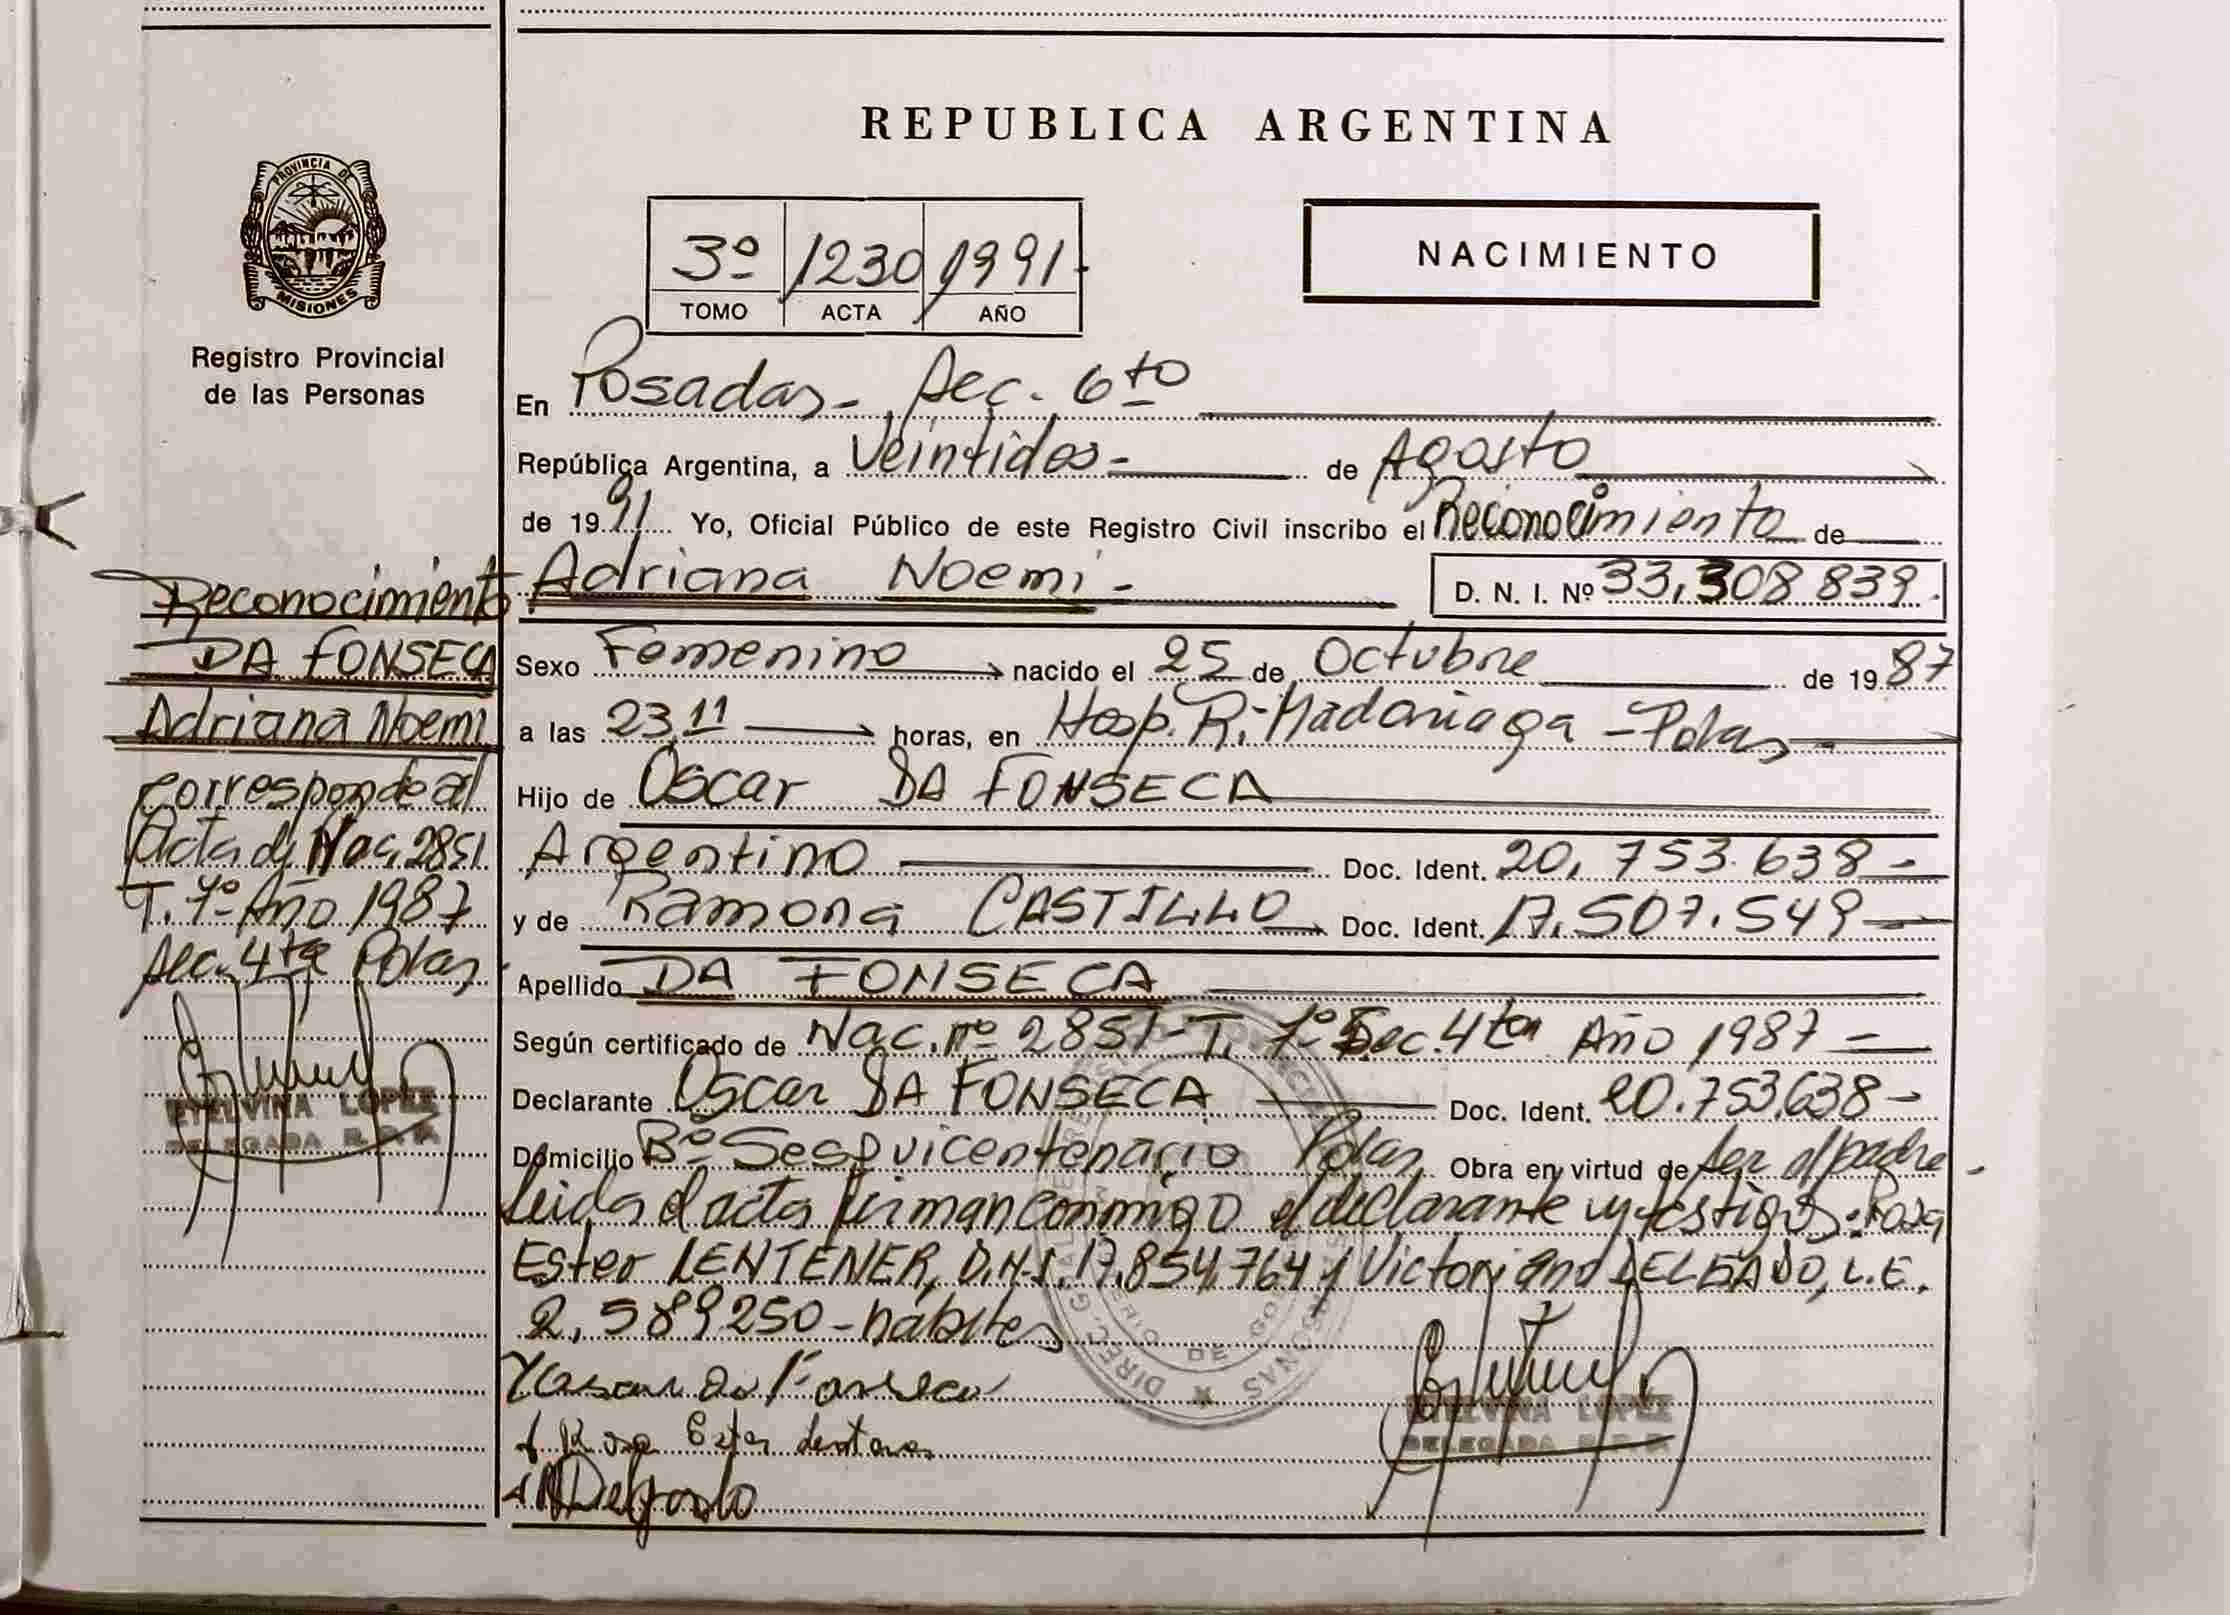 REPUBLICA ARGENTINA
PROVINCIA DE
MISIONES
Registro Provincial
de las Personas
3º 1230 1991
TOMO ACTA AÑO
NACIMIENTO
En Posadas - Sec. 6to
República Argentina, a Veintidos - de Agosto
de 1991 Yo, Oficial Público de este Registro Civil inscribo el Reconocimiento de
Adriana Noemi - D. N. I. Nº 33,308 839.
Sexo Femenino nacido el 25 de Octubre de 1987
a las 23,11 horas, en Hosp. R. Madariaga - Pdas
Hijo de Oscar DA FONSECA
Argentino Doc. Ident. 20, 753.638 -
y de Ramona CASTILLO Doc. Ident. 17.507.549
Apellido DA FONSECA
Según certificado de Nac. nº 2851 - T. 7º Sec. 4ta Año 1987 -
Declarante Oscar DA FONSECA Doc. Ident. 20.753.638 -
Domicilio Bº Sesquicentenario Pdas Obra en virtud de ser el padre -
Leida el acta firman conmigo el declarante y testigos: Rosa
Ester LENTENER, D.N.I. 17.854.764 y Victoriano DELGADO, L.E.
2,589250 - habites
Reconocimiento
DA FONSECA
Adriana Noemi
corresponde al
Acta de Nac. 2851
T. 7º Año 1987
Sec. 4ta Pdas
ETELVINA LOPEZ
DELEGADA R.P.P.
Rosa Ester
Delgado
ETELVINA LOPEZ
DELEGADA R.P.P.